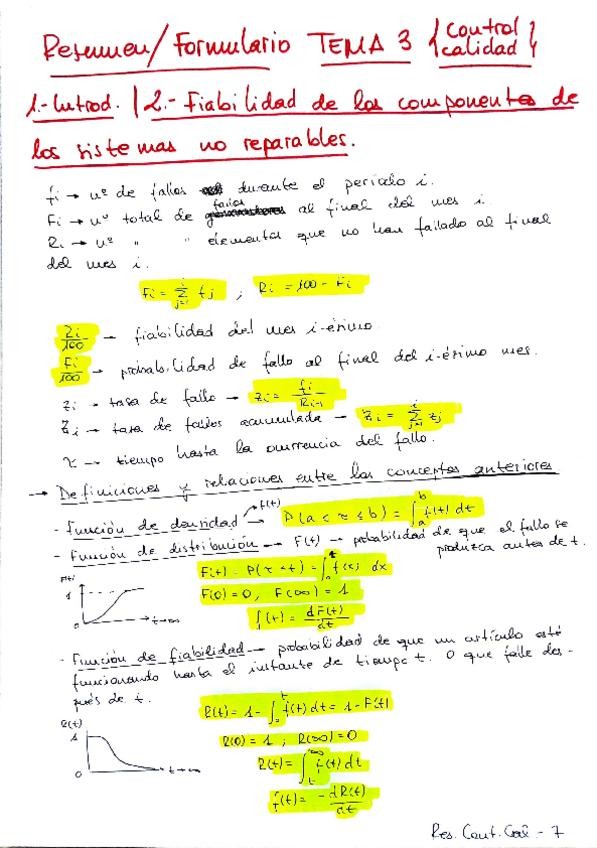 Resumen/Formulario TEMA 3 {Control calidad}
1.- Introd. | 2.- Fiabilidad de los componentes de
los sistemas no reparables.
fi → nº de fallos durante el periodo i.
Fi → nº total de fallos al final del mes i.
Ri → nº " " elementos que no han fallado al final
del mes i.
Fi = Σ_{j=1}^{i} fj ; Ri = 100 - Fi
Ri/100 → fiabilidad del mes i-ésimo.
Fi/100 → probabilidad de fallo al final del i-ésimo mes.
zi → tasa de fallo → zi = fi/Ri-1
Zi → tasa de fallos acumulada → Zi = Σ_{j=1}^{i} zj
τ → tiempo hasta la ocurrencia del fallo.
→ Definiciones y relaciones entre los conceptos anteriores
- Función de densidad → f(t) → P(a ≤ τ ≤ b) = ∫_a^b f(t) dt
- Función de distribución → F(t) → probabilidad de que el fallo se
produzca antes de t.
F(t) = P(τ < t) = ∫_0^t f(x) dx
F(0) = 0, F(∞) = 1
f(t) = dF(t)/dt
F(t)
1
0
t→∞
- Función de fiabilidad → probabilidad de que un artículo esté
funcionando hasta el instante de tiempo t. O que falle des-
pués de t.
R(t) = 1 - ∫_0^t f(t) dt = 1 - F(t)
R(0) = 1 ; R(∞) = 0
R(t) = ∫_t^∞ f(t) dt
f(t) = -dR(t)/dt
R(t)
1
0
t→∞
Res. Cont. Cal - 7